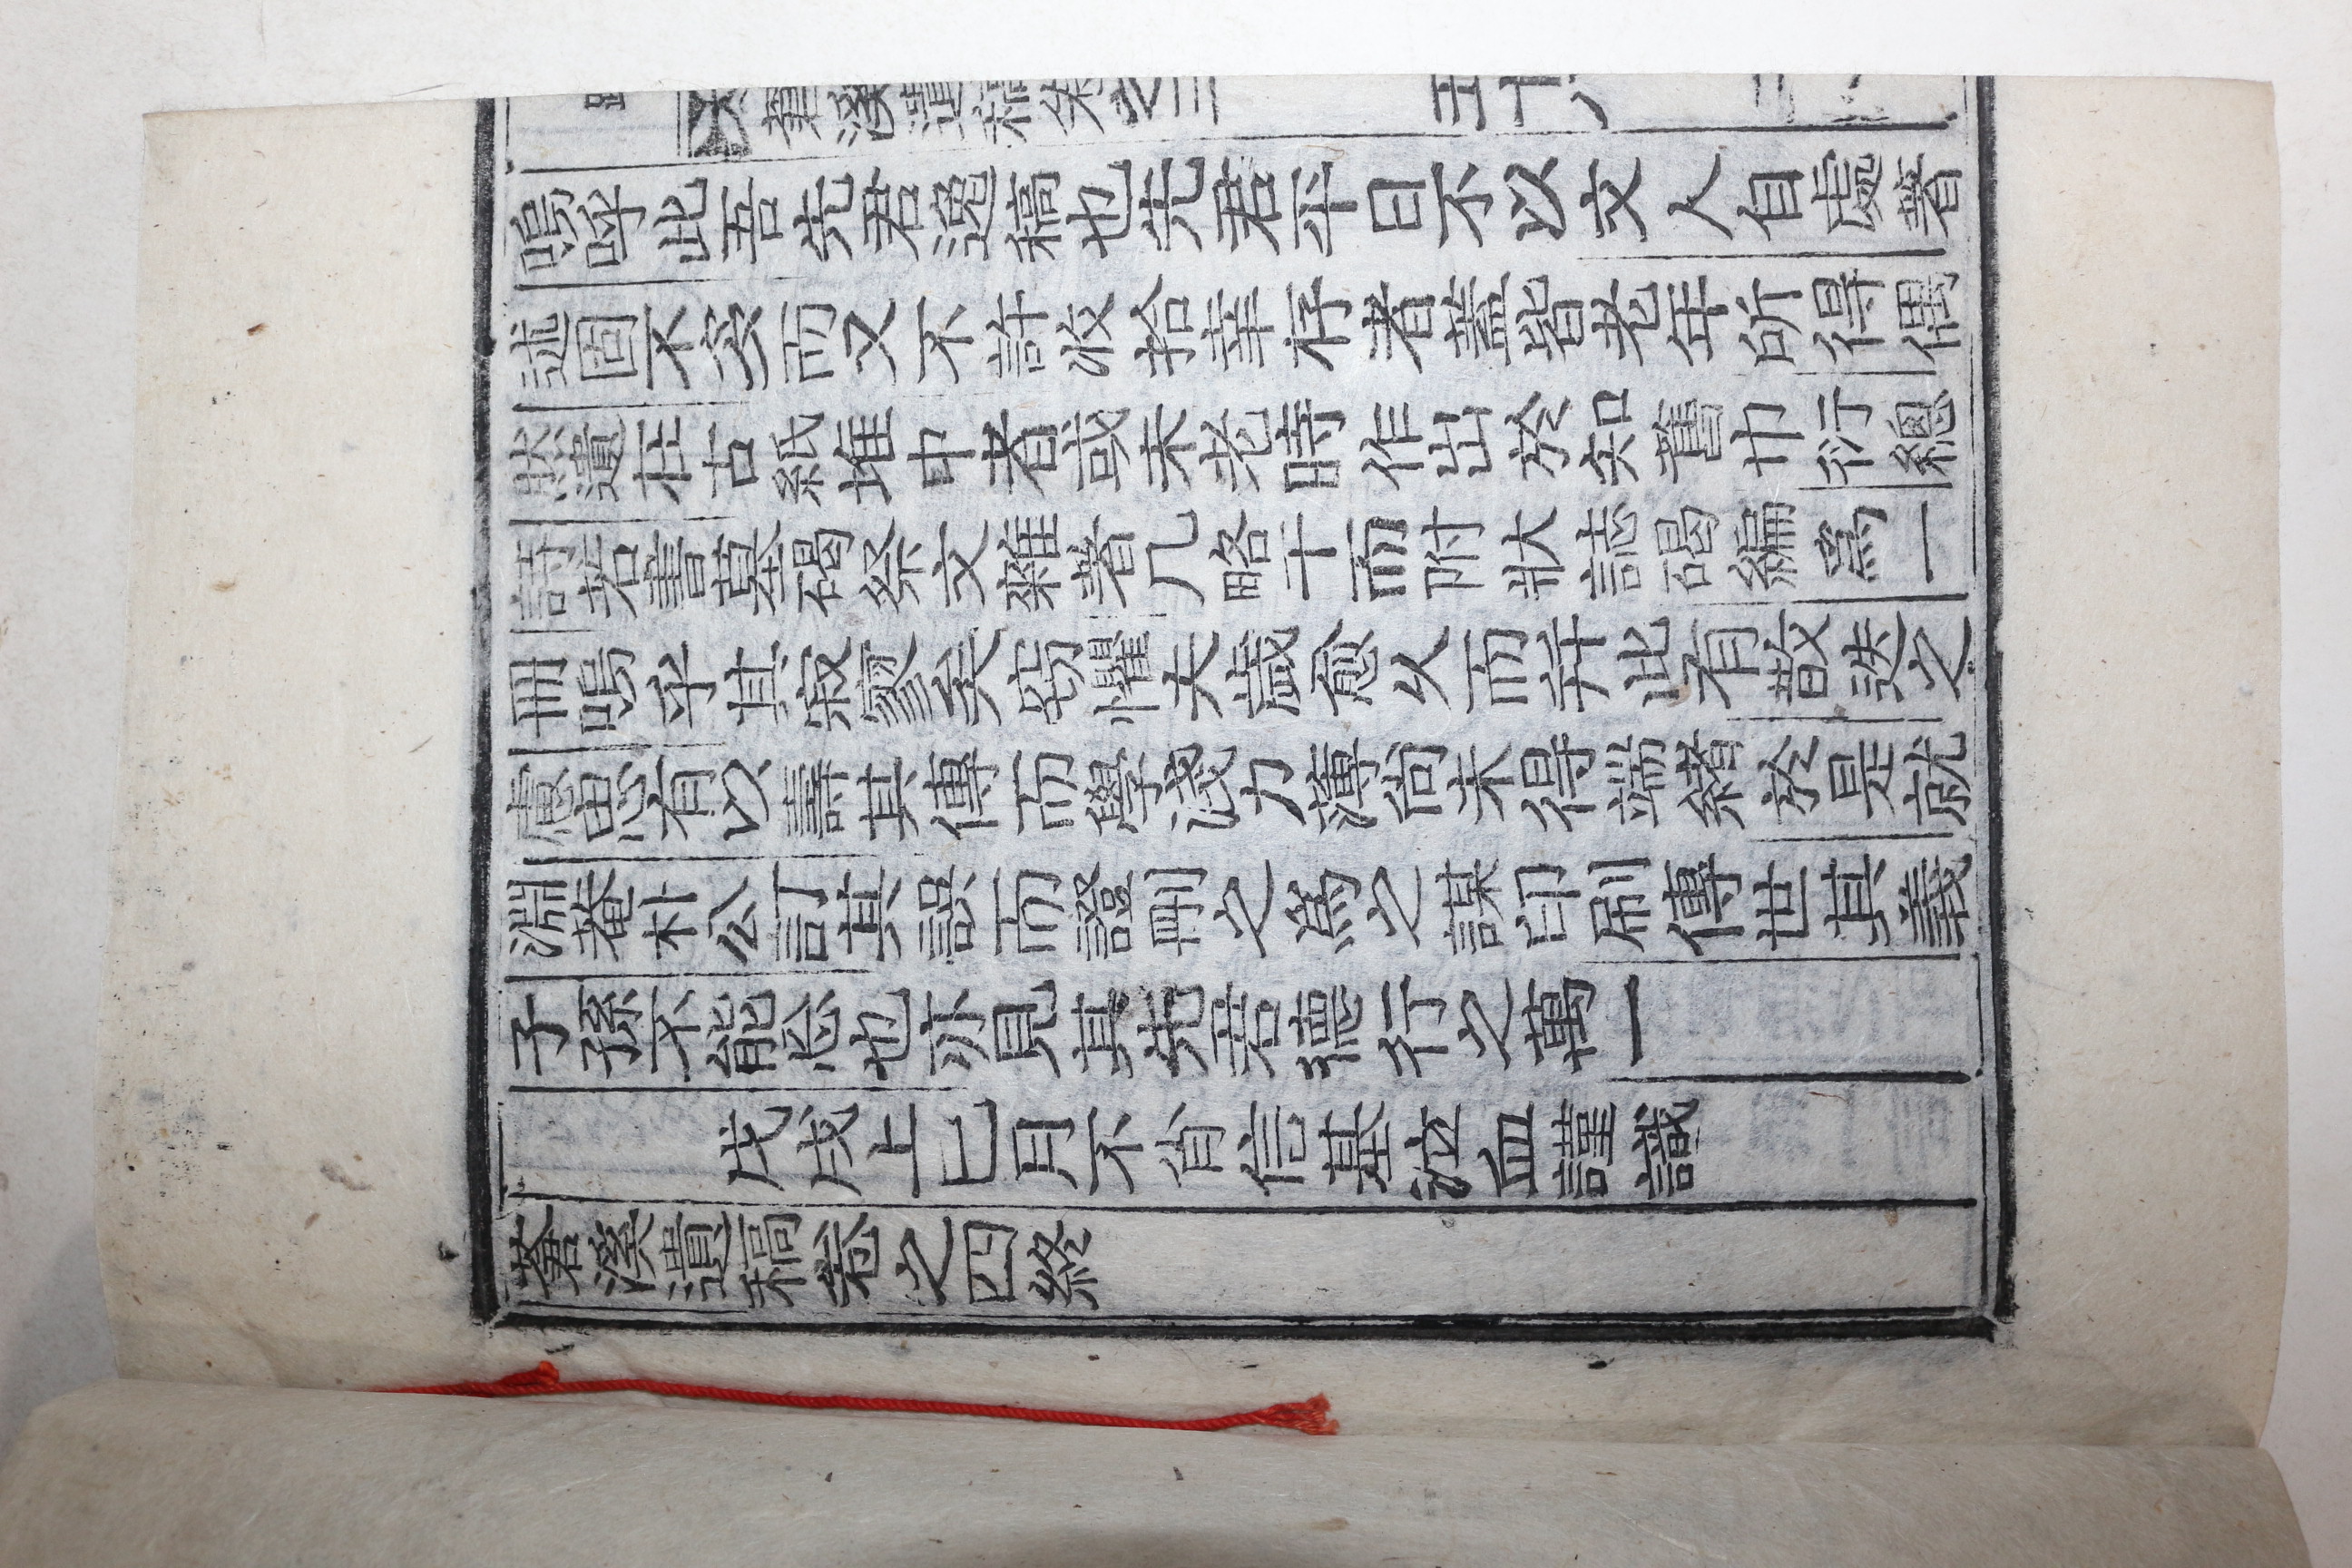 蒼溪遺稿卷之三 五十八
嗚呼此吾先君逸稿也先君平日不以文人自處著
述固不多而又不許收拾幸存者蓋皆老年所得偶
然遺在古紙堆中者或未老時作出於知舊巾衍總
詩若書墓碣祭文雜著几略干而附狀誌碣編爲一
冊嗚乎其寂寥矣窃懼夫歲愈久而并此有散迭之
慮思有以壽其傳而學淺力薄尙未得端緖於是就
淵菴朴公訂其誤而證刪之爲之謀印刷傳世其義
子孫不能忘也亦見其先君德行之萬一
戊戌上巳月不肖信基泣血謹識
蒼溪遺稿卷之四終